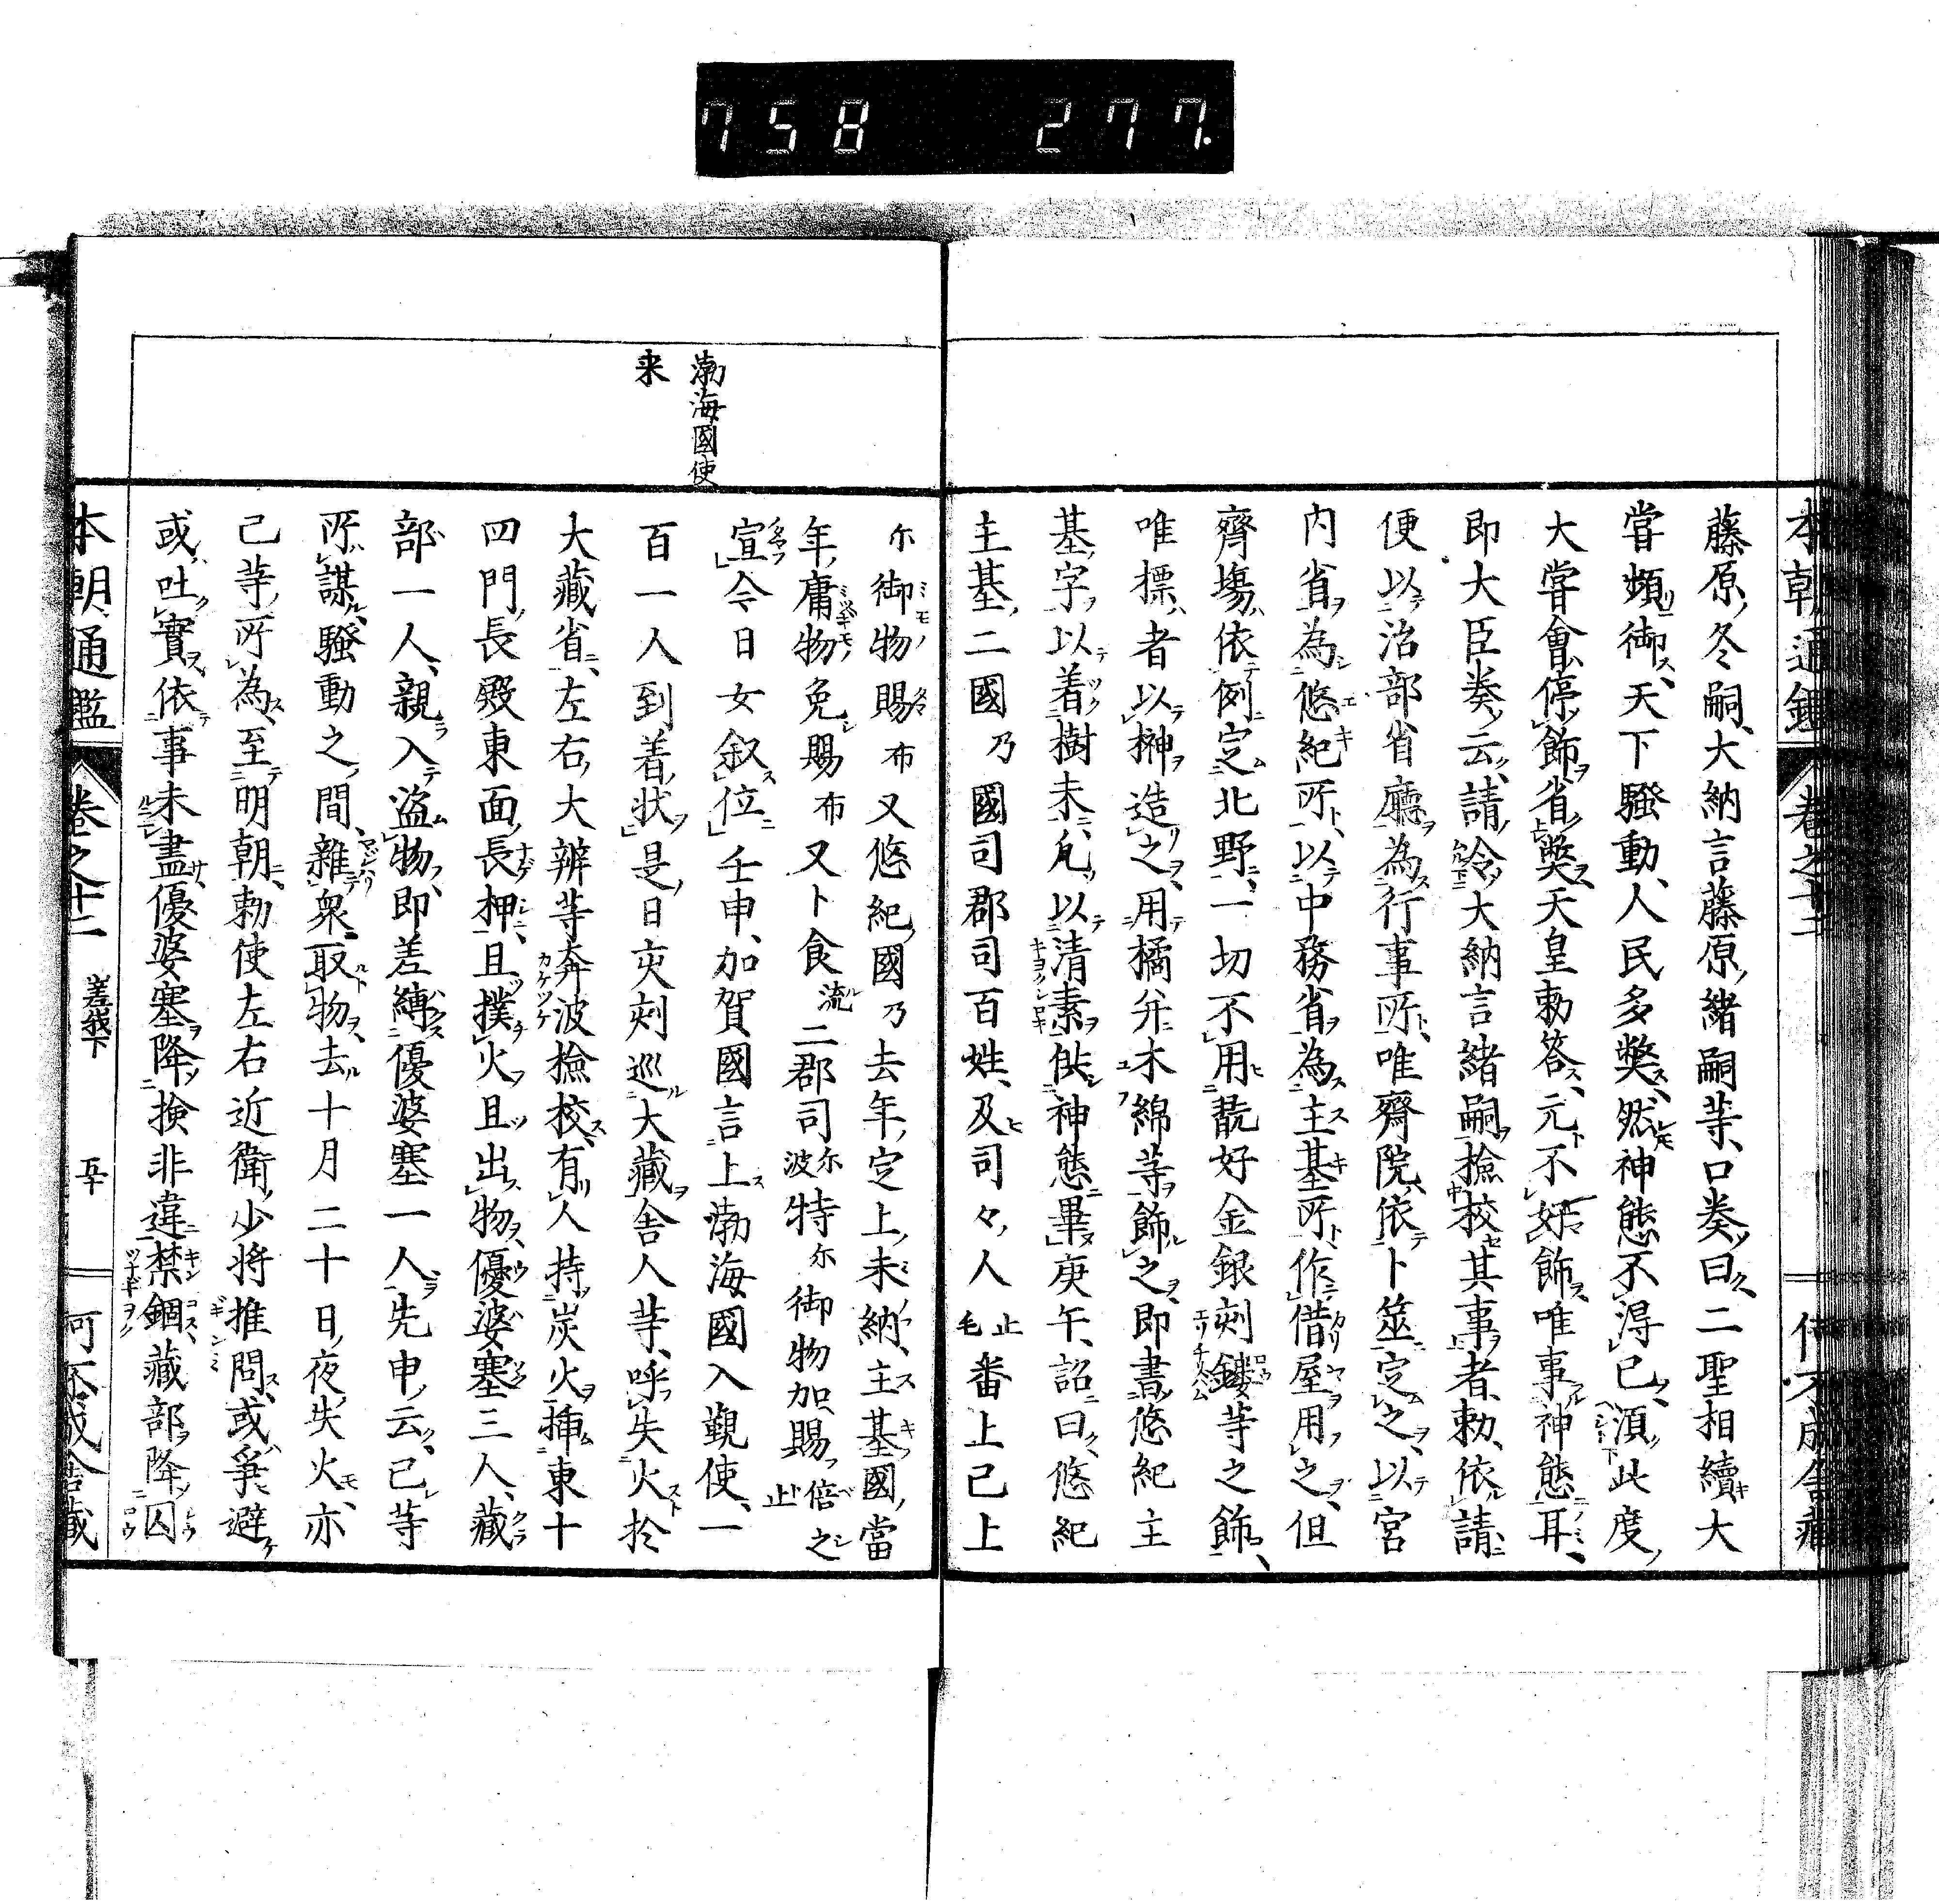 758 277.
本朝通鑑 卷之十二
藤原冬嗣大納言藤原緒嗣等口奏曰二聖相續大
嘗頻御天下騷動人民多獘然神態不得已湏此度
大嘗會停飾省獘天皇勅答元不好飾唯事神態耳
即大臣奏云請令大納言緒嗣撿校其事者勅依請
便以治部省廳為行事所唯齊院依卜筮定之以宮
内省為悠紀所以中務省為主基所作借屋用之但
齊塲依例定北野一切不用翫好金銀刻鏤等之飾
唯標者以榊造之用橘并木綿等飾之即書悠紀主
基字以着樹末凢以清素供神態畢庚午詔曰悠紀
主基二國乃國司郡司百姓及司々人止毛番上已上
渤海國使
来
尓御物賜布又悠紀國乃去年定上未納主基國當
年庸物免賜布又卜食流二郡司尓波特尓御物加賜倍之止
宣令日女叙位壬申加賀國言上渤海國入覲使一
百一人到着狀是日夾刻巡大藏舎人等呼失火扵
大藏省左右大辨等奔波撿校有人持炭火揷東十
四門長殿東面長押且撲火且出物優婆塞三人藏
部一人親入盜物即差縛優婆塞一人先申云己等
所謀騷動之間雜衆取物去十月二十日夜失火亦
己等所為至明朝勅使左右近衛少将推問或爭避
或吐實依事未盡優婆塞降撿非違禁錮藏部降囚
本朝通鑑 卷之十二 嵯峨下 五十